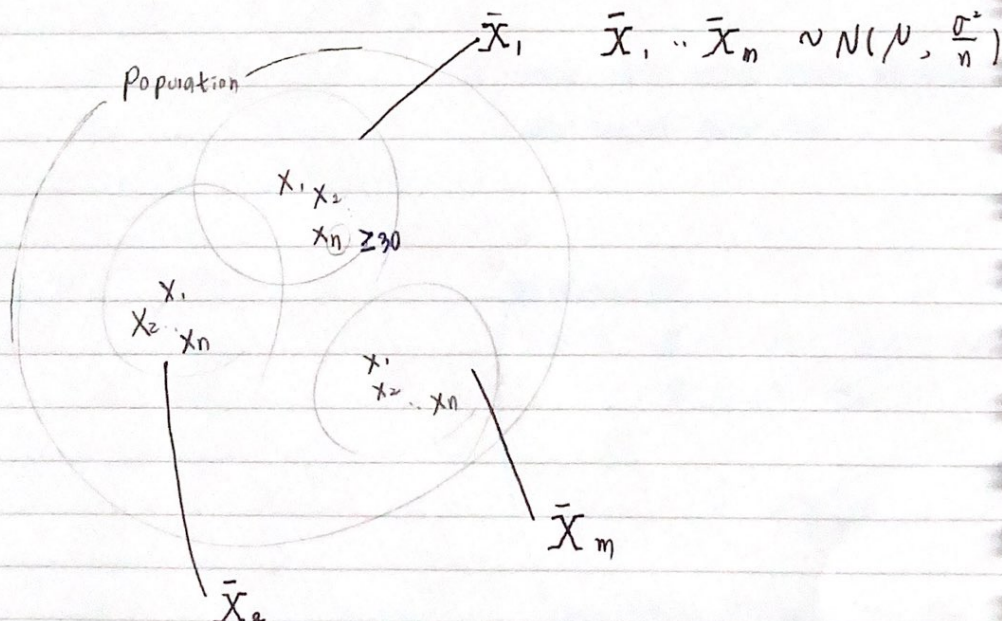 X̄₁ X̄₁ ·· X̄ₘ ~ N(μ, σ²/n)
Population
X₁ X₂
Xn ≥30
X₁
X₂ ·· Xn
X₁
X₂ ·· Xn
X̄ₘ
X̄₂